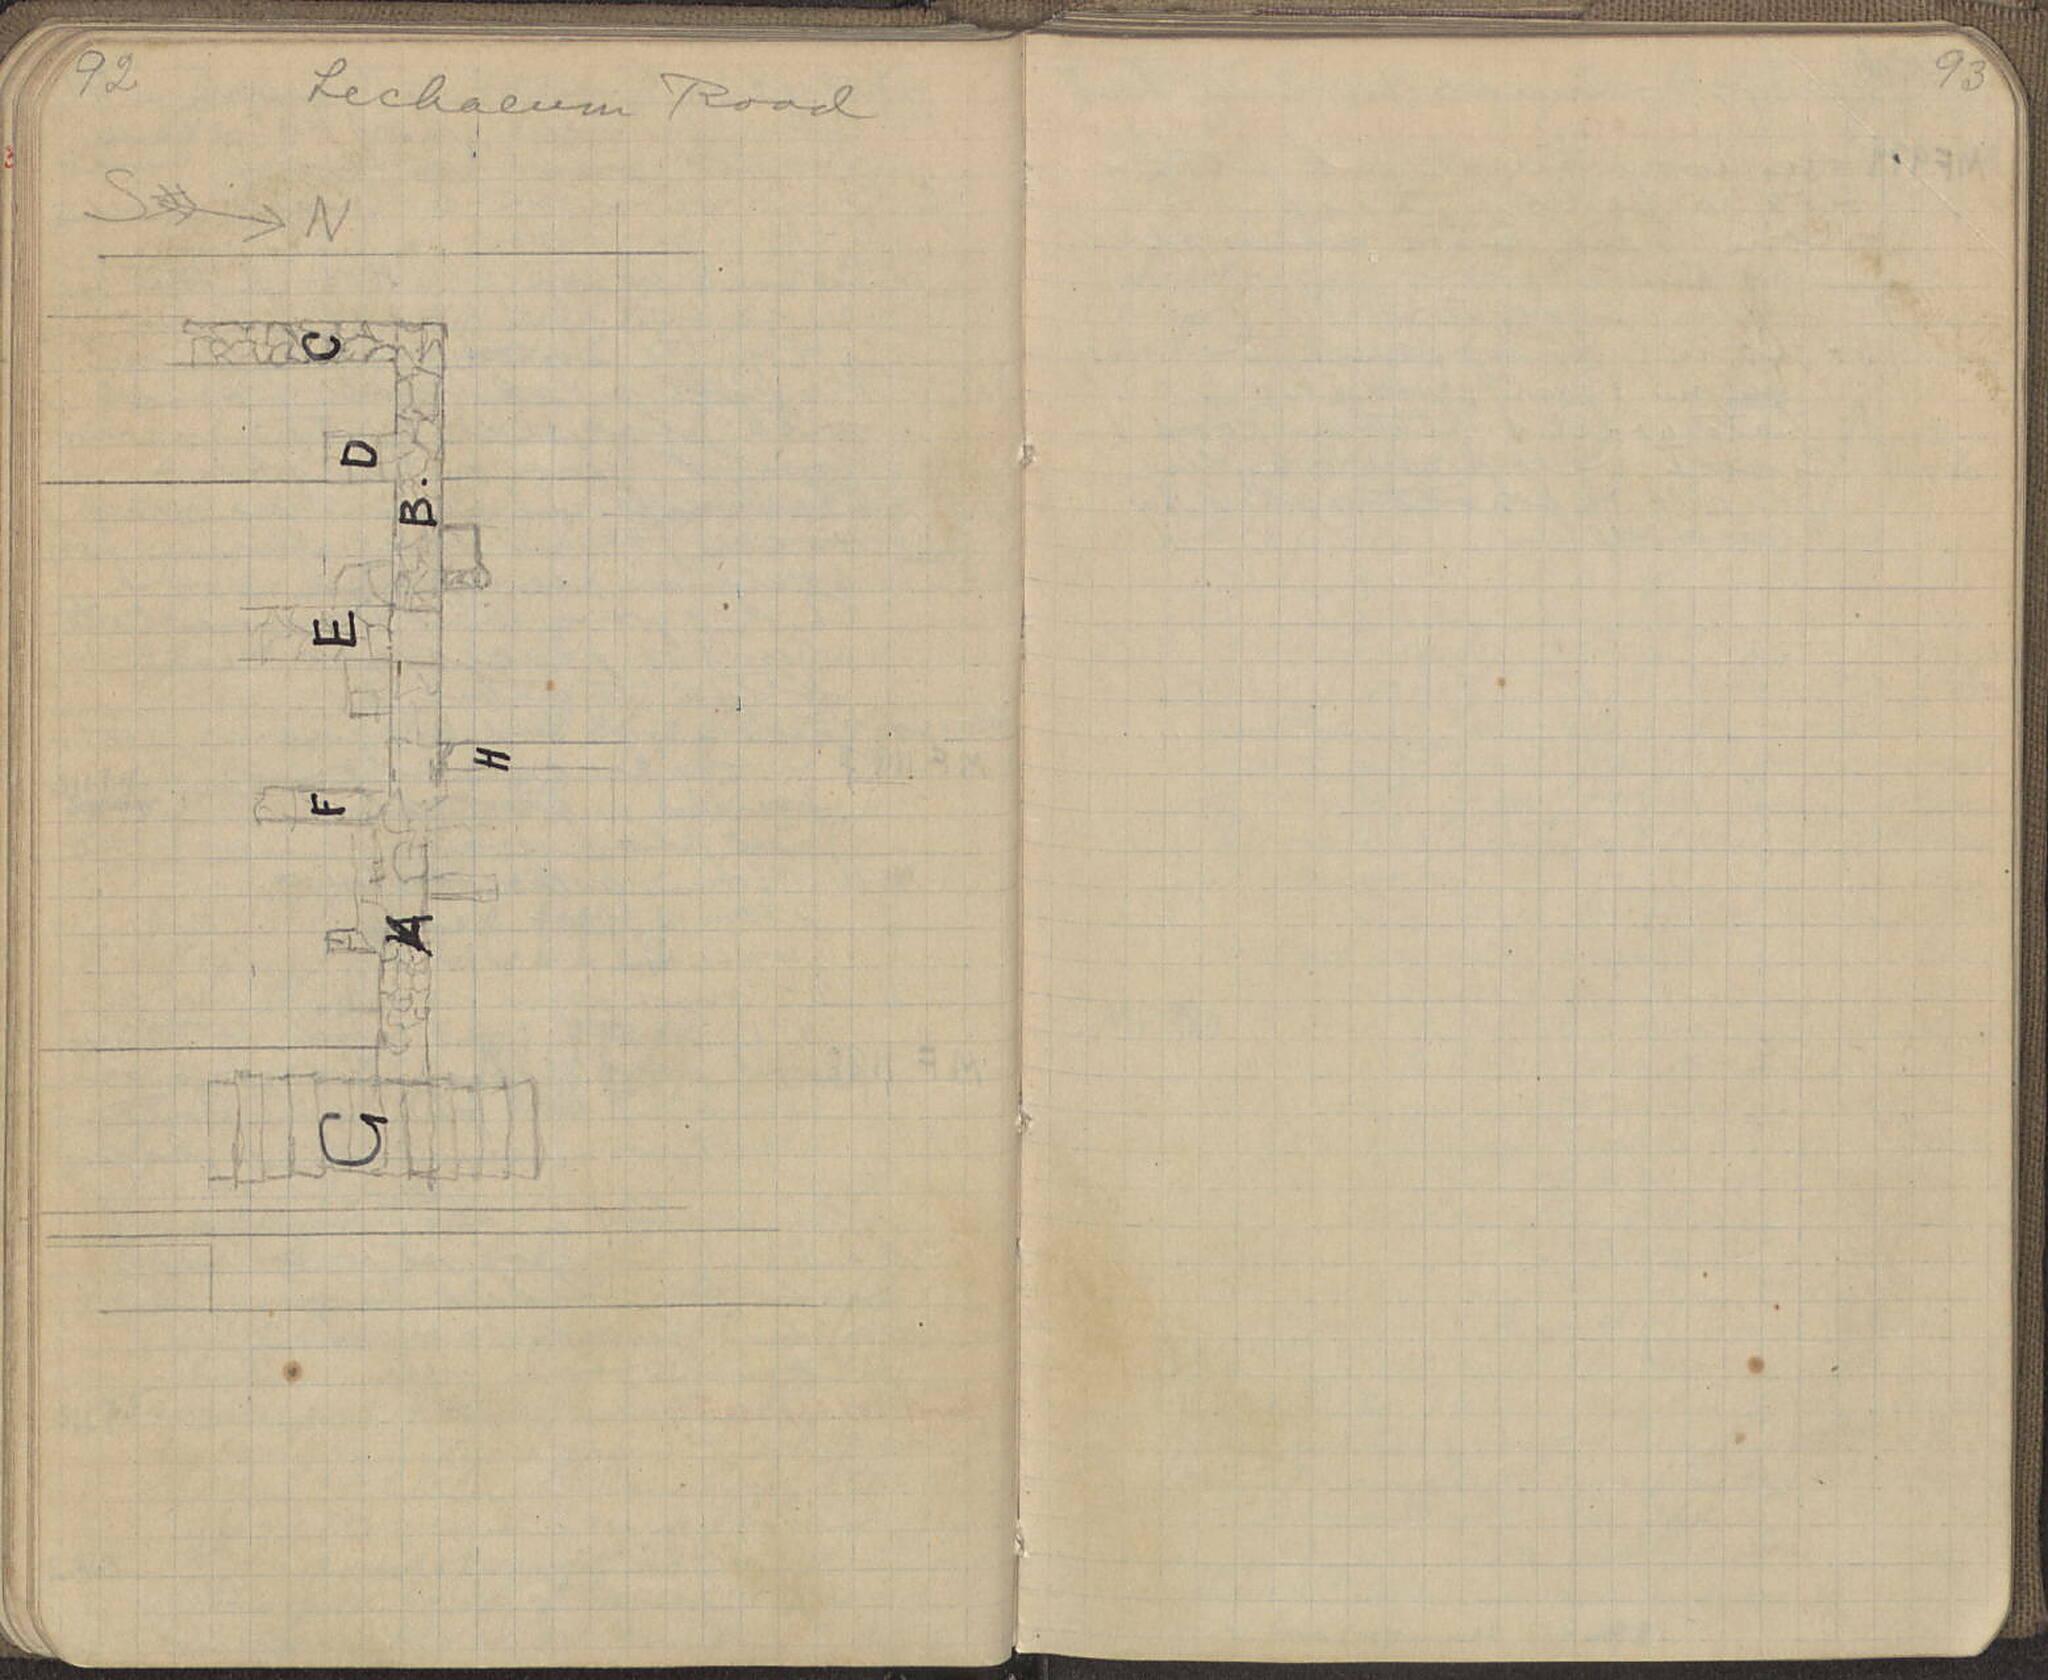 92
Lechaeum Road
S N
C
D
B.
E
H
F
A
G
93